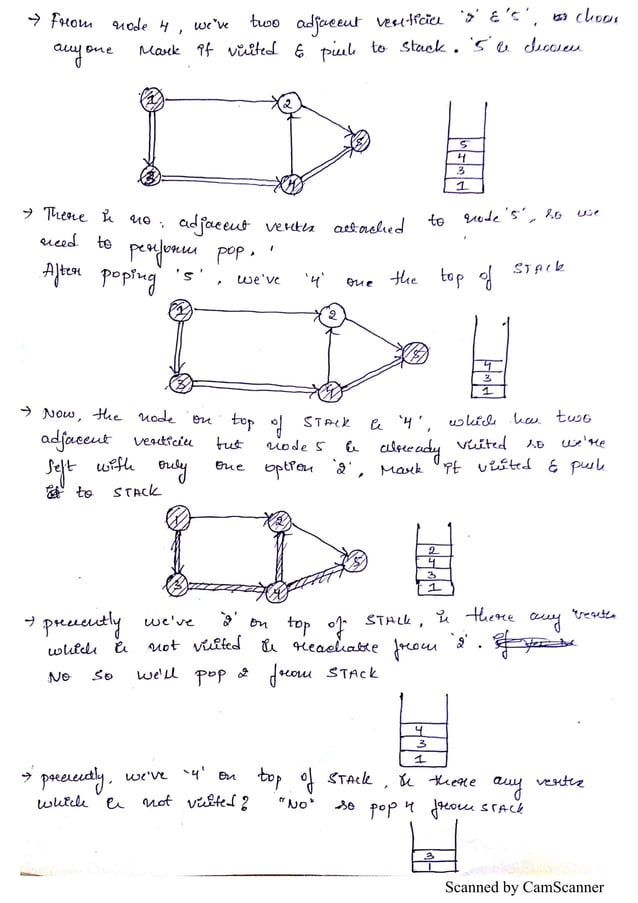 → From node 4, we've two adjacent verticies '2' & '5', choose
anyone Mark it visited & push to stack. '5' is choosen
1 2
5
3 4
5
4
3
1
→ There is no adjacent vertex attached to node '5', so we
need to perform pop.
After poping '5', we've '4' one the top of STACK
1 2
5
3 4
4
3
1
→ Now, the node on top of STACK is '4', which has two
adjacent verticies but node 5 is already visited so we're
left with only one option '2', Mark it visited & push
it to STACK
1 2
5
3 4
2
4
3
1
→ presently we've '2' on top of STACK, is there any vertex
which is not visited & reachable from '2'.
No so we'll pop 2 from STACK
4
3
1
→ presently, we've '4' on top of STACK, is there any vertex
which is not visited? "No" so pop 4 from STACK
3
1
Scanned by CamScanner